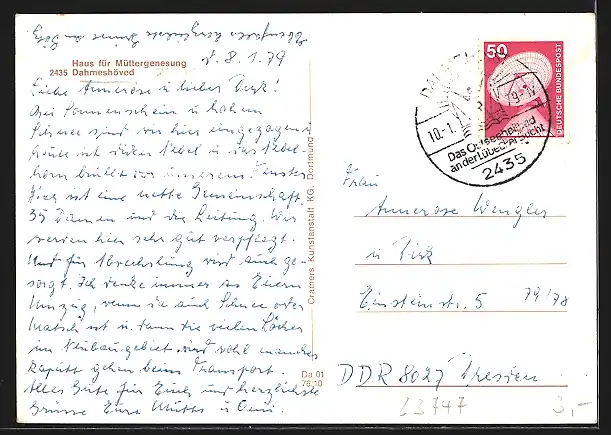 d. 8.1.79
Haus für Müttergenesung
2435 Dahmeshöved
Liebe Annerose u lieber Dirk!
Bei Sonnenschein u hohem
Schnee sind wir hier eingezogen
heute ist dicker Nebel u das Nebel-
horn brüllt vor unserem Fenster
Hier ist eine nette Gemeinschaft.
35 Damen und die Leitung. Wir
werden hier sehr gut verpflegt.
Und für Abwechslung wird auch ge-
sorgt. Ich denke immer an Euern
Umzug, wenn da auch Schnee oder
Matsch ist u dann die vielen Löcher
im Neubaugebiet wird wohl manches
kaputt gehen beim Transport.
Alles Gute für Euch und herzlichste
Grüsse Eure Mutti u Omi.
Cramers Kunstanstalt KG. Dortmund
Da 01
76/10
50
DEUTSCHE BUNDESPOST
10.-1.
Das Ostseeheilbad
an der Lübecker Bucht
2435
Frau
Annerose Wengler
u Dirk
Einsteinstr. 5
79/78
DDR 8027 Dresden
L3747
3,-